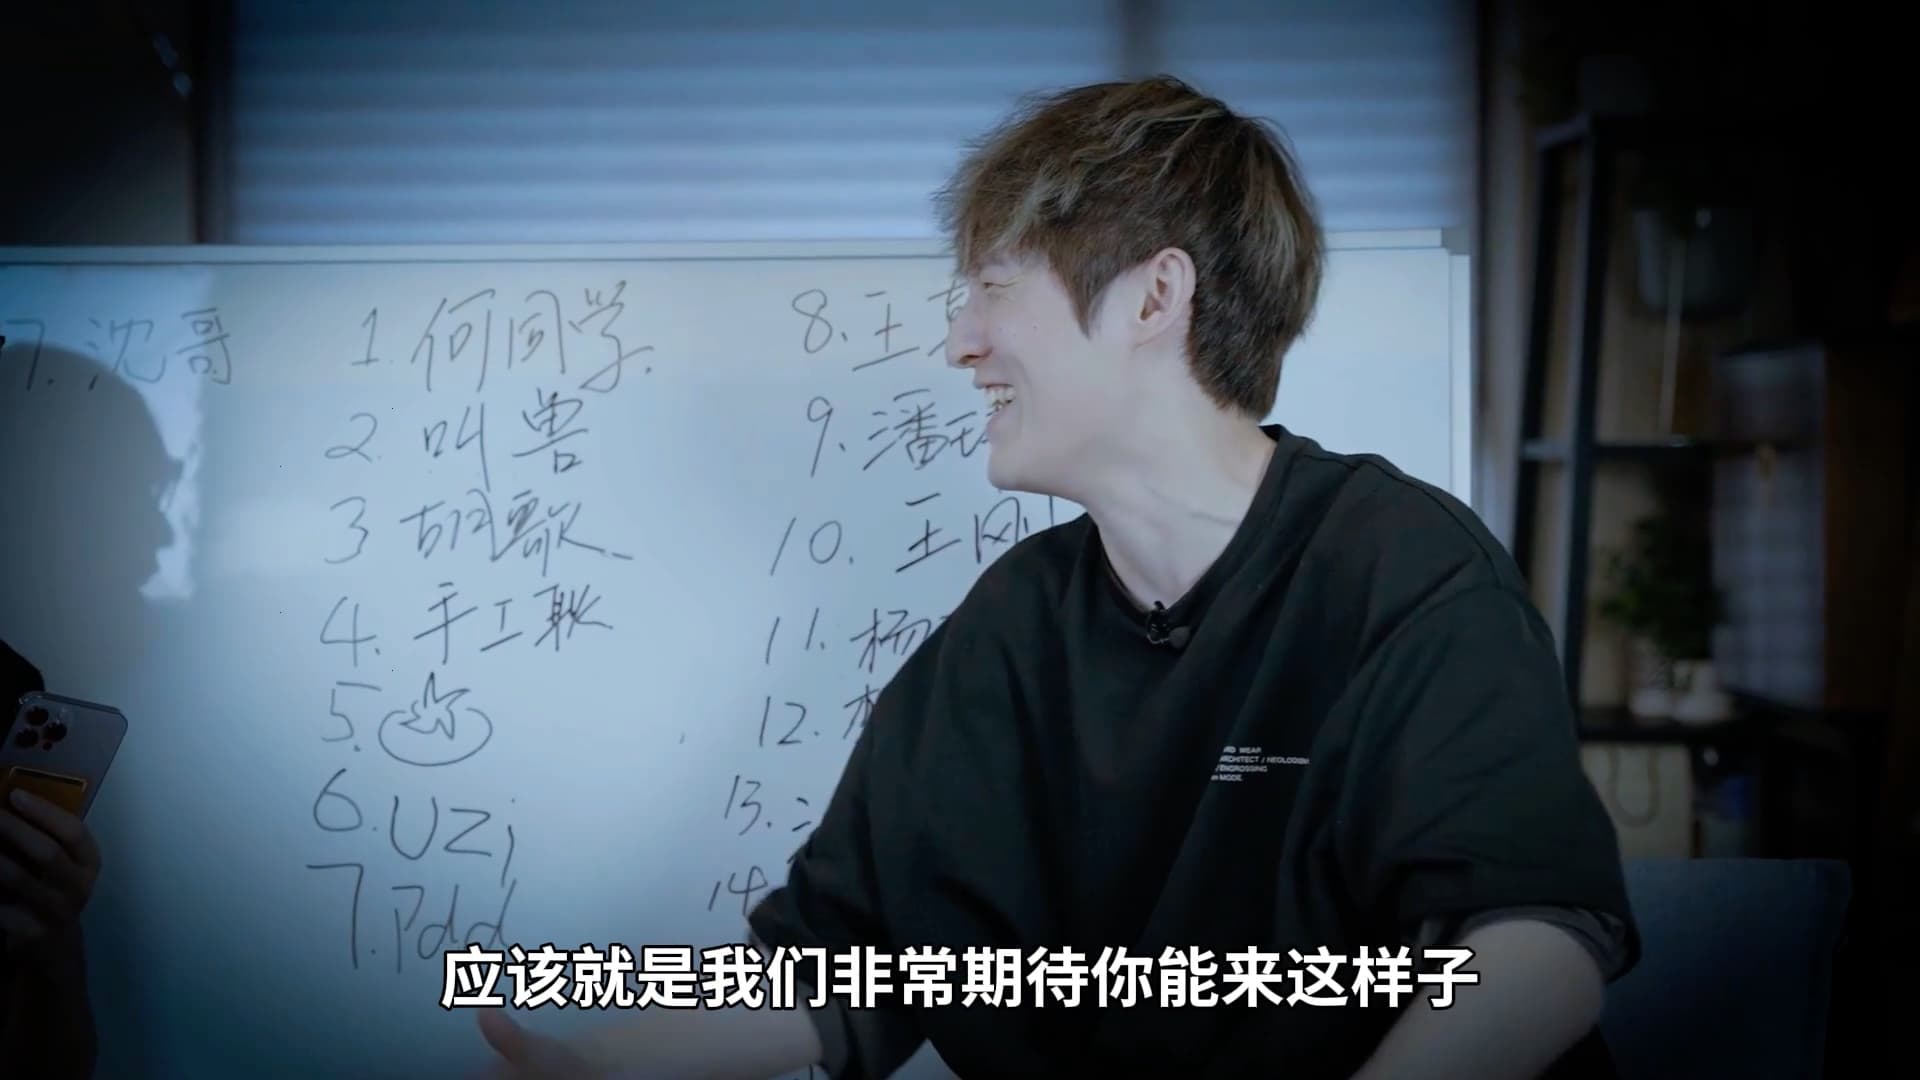 7. 沈哥
1. 何同学.
2. 叫兽
3 胡歌
4. 手工耿
5.
6. Uzi
7. Pdd
8. 王
9. 潘
10. 王刚
11. 杨
12.
13.
14
WEAR
ARCHITECT / NEOLOGISM
/ ENGROSSING
MODE.
应该就是我们非常期待你能来这样子